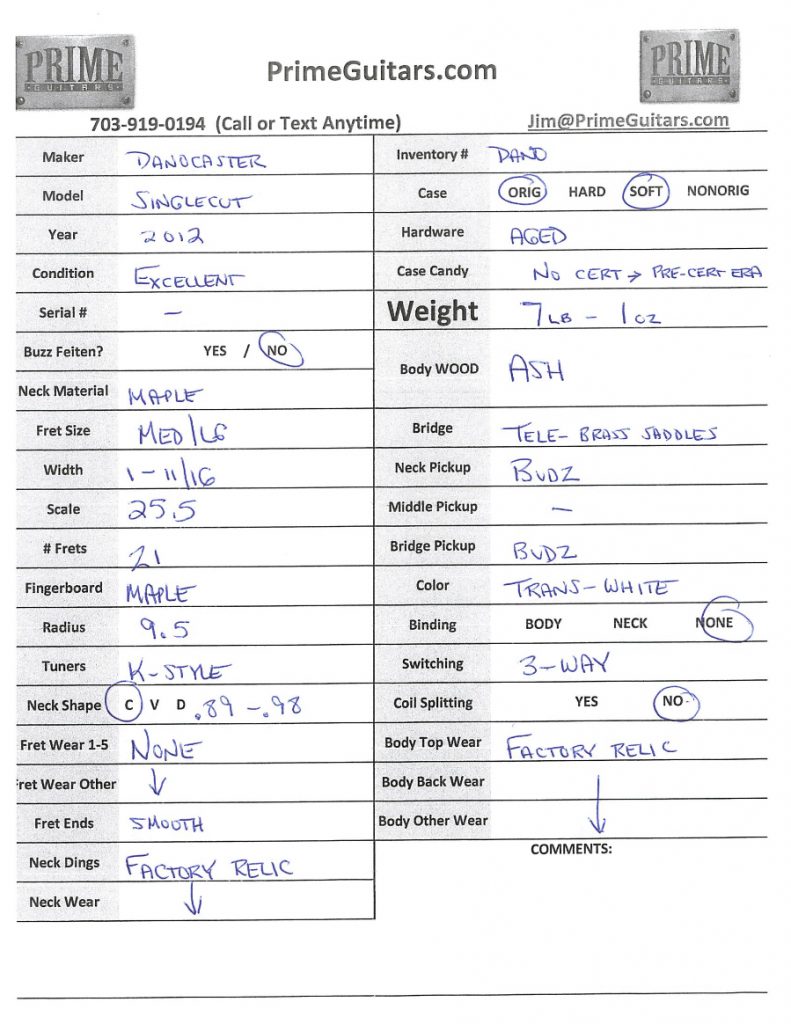 PRIME
GUITARS
PrimeGuitars.com
PRIME
GUITARS
703-919-0194 (Call or Text Anytime)
Jim@PrimeGuitars.com
Maker DANOCASTER
Model SINGLECUT
Year 2012
Condition EXCELLENT
Serial # —
Buzz Feiten? YES / NO
Neck Material MAPLE
Fret Size MED/LG
Width 1-11/16
Scale 25.5
# Frets 21
Fingerboard MAPLE
Radius 9.5
Tuners K-STYLE
Neck Shape C V D .89 -.98
Fret Wear 1-5 NONE
Fret Wear Other ↓
Fret Ends SMOOTH
Neck Dings FACTORY RELIC
Neck Wear ↓
Inventory # DANO
Case ORIG HARD SOFT NONORIG
Hardware AGED
Case Candy NO CERT → PRE-CERT ERA
Weight 7LB - 1OZ
Body WOOD ASH
Bridge TELE-BRASS SADDLES
Neck Pickup BUDZ
Middle Pickup —
Bridge Pickup BUDZ
Color TRANS-WHITE
Binding BODY NECK NONE
Switching 3-WAY
Coil Splitting YES NO
Body Top Wear FACTORY RELIC
Body Back Wear
Body Other Wear ↓
COMMENTS: